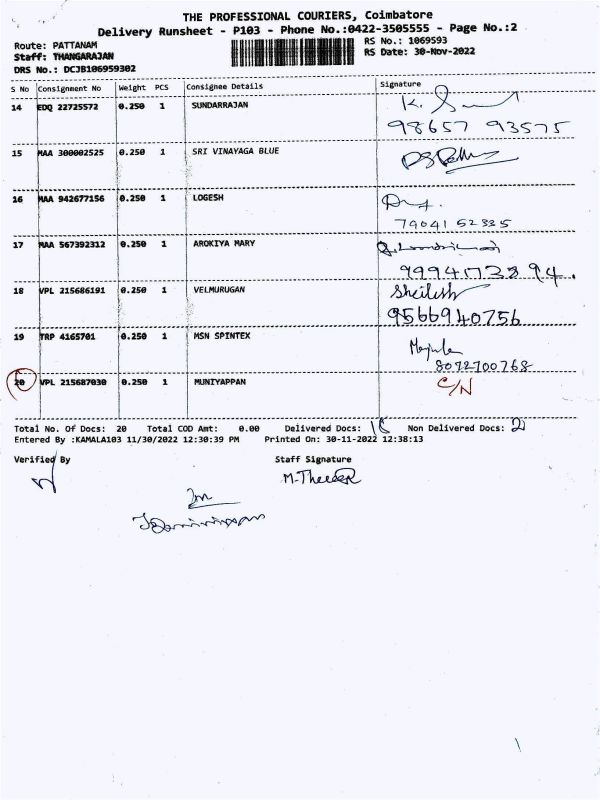 THE PROFESSIONAL COURIERS, Coimbatore
Delivery Runsheet - P103 - Phone No.:0422-3505555 - Page No.:2
Route: PATTANAM
RS No.: 1069593
Staff: THANGARAJAN
RS Date: 30-Nov-2022
DRS No.: DCJB106959302
S No Consignment No Weight PCS Consignee Details Signature
14 EDQ 22725572 0.250 1 SUNDARRAJAN
98657 93575
15 MAA 300002525 0.250 1 SRI VINAYAGA BLUE
16 MAA 942677156 0.250 1 LOGESH
79041 52335
17 MAA 567392312 0.250 1 AROKIYA MARY
18 VPL 215686191 0.250 1 VELMURUGAN Shailesh
9566940756
19 TRP 4165701 0.250 1 MSN SPINTEX
8072700768
20 VPL 215687030 0.250 1 MUNIYAPPAN C/N
Total No. Of Docs: 20 Total COD Amt: 0.00 Delivered Docs: 18 Non Delivered Docs: 2
Entered By :KAMALA103 11/30/2022 12:30:39 PM Printed On: 30-11-2022 12:38:13
Verified By Staff Signature